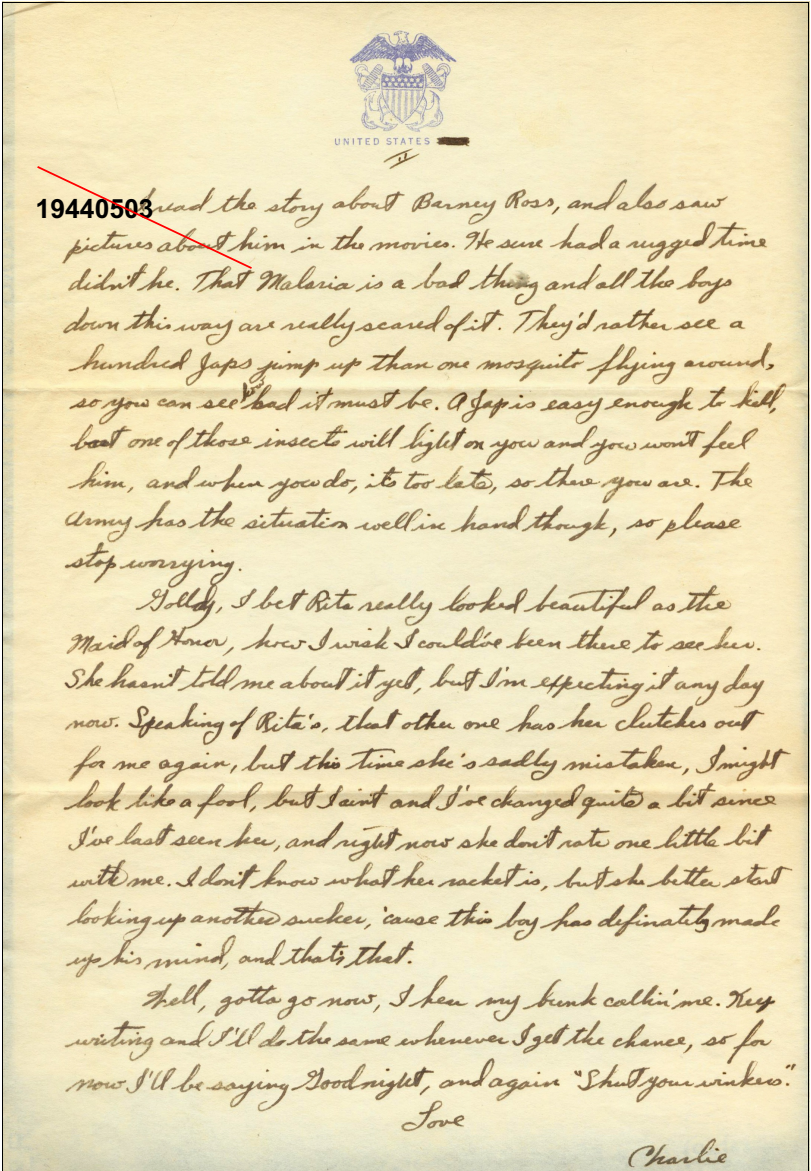 UNITED STATES
II
19440503
I read the story about Barney Ross, and also saw
pictures about him in the movies. He sure had a rugged time
didn't he. That Malaria is a bad thing and all the boys
down this way are really scared of it. They'd rather see a
hundred Japs jump up than one mosquito flying around,
so you can see how bad it must be. A Jap is easy enough to kill,
but one of those insects will light on you and you won't feel
him, and when you do, its too late, so there you are. The
Army has the situation well in hand though, so please
stop worrying.
Golly, I bet Rita really looked beautiful as the
Maid of Honor, how I wish I could've been there to see her.
She hasn't told me about it yet, but I'm expecting it any day
now. Speaking of Rita's, that other one has her clutches out
for me again, but this time she's sadly mistaken, I might
look like a fool, but I aint and I've changed quite a bit since
I've last seen her, and right now she don't rate one little bit
with me. I don't know what her racket is, but she better start
looking up another sucker, 'cause this boy has definately made
up his mind, and that's that.
Well, gotta go now, I hear my bunk callin' me. Keep
writing and I'll do the same whenever I get the chance, so for
now I'll be saying Goodnight, and again "Shut your winkers."
Love
Charlie